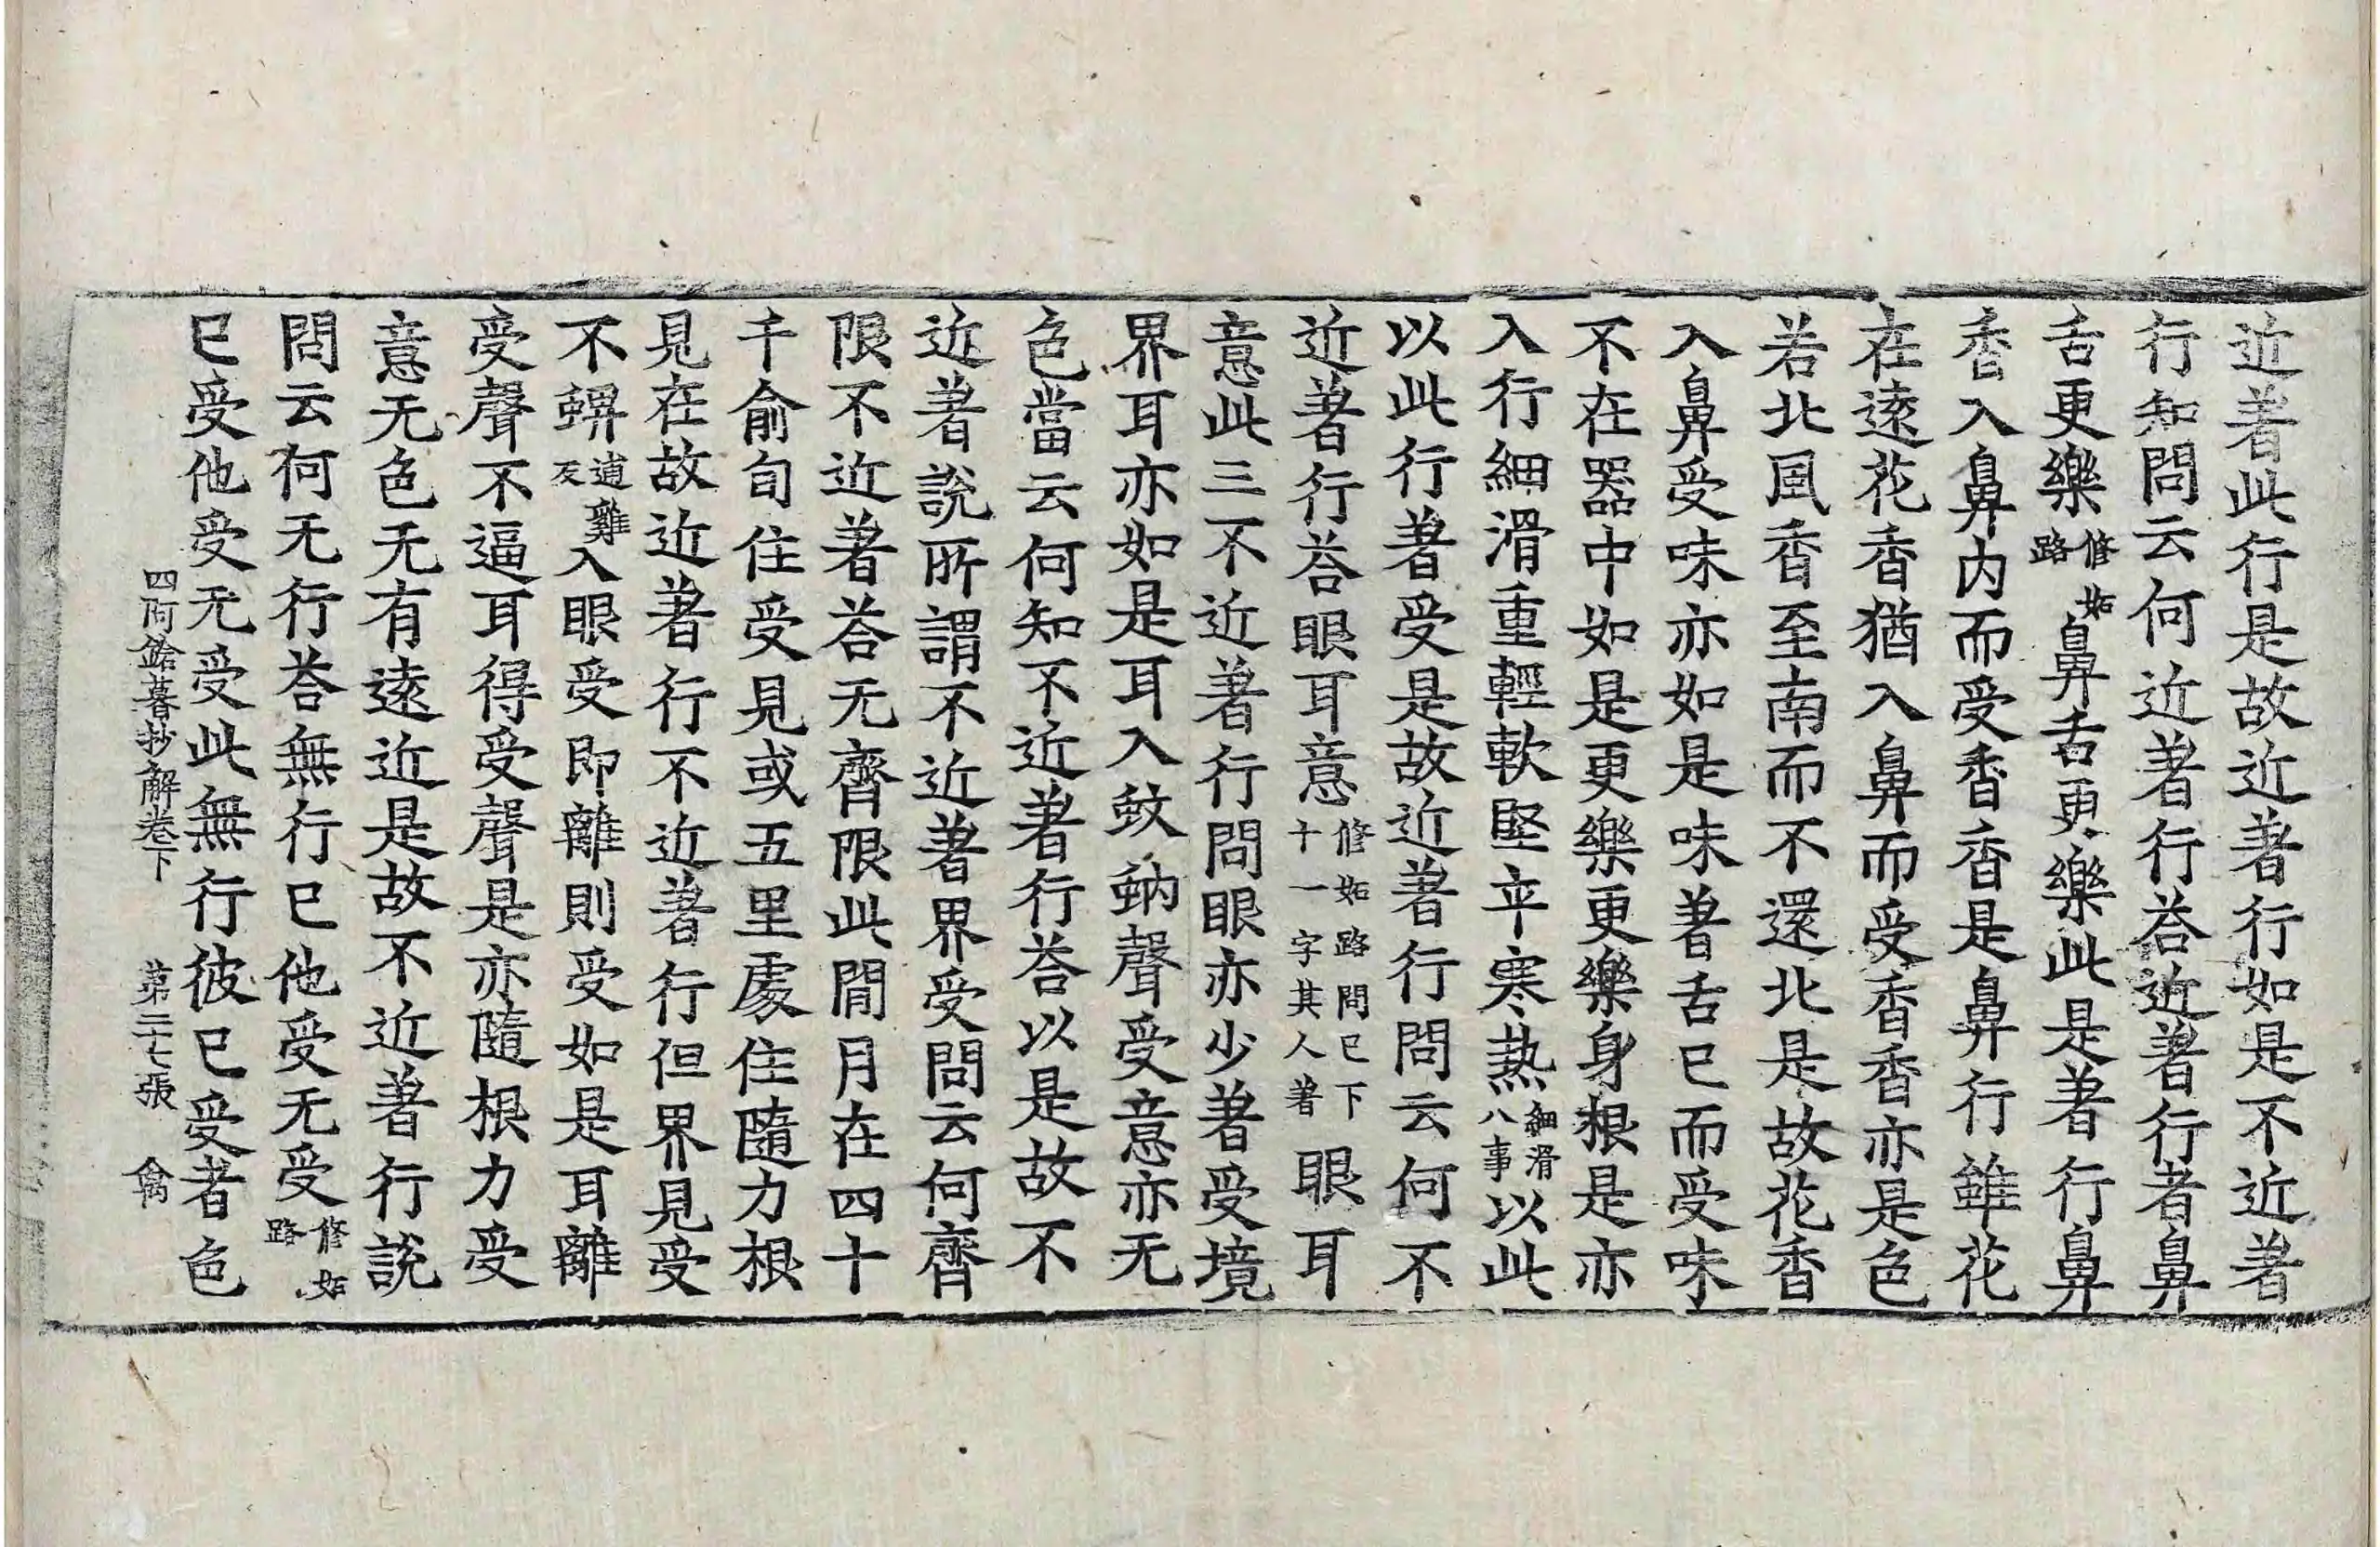 近著此行是故近著行如是不近著
行知問云何近著行荅近著行者鼻
舌更樂修妬路鼻舌更樂此是著行鼻
香入鼻内而受香香是鼻行雖花
在遠花香猶入鼻而受香香亦是色
若北風香至南而不還北是故花香
入鼻受味亦如是味著舌已而受味
不在器中如是更樂更樂身根是亦
入行細滑重輕軟堅平寒熱細滑八事以此
以此行著受是故近著行問云何不
近著行荅眼耳意修妬路問已下十一字其人著眼耳
意此三不近著行問眼亦少著受境
界耳亦如是耳入蚊蚋聲受意亦无
色當云何知不近著行荅以是故不
近著說所謂不近著界受問云何齊
限不近著荅无齊限此閒月在四十
千俞旬住受見或五里處住隨力根
見在故近著行不近著行但界見受
不蜯逋雞反入眼受即離則受如是耳離
受聲不逼耳得受聲是亦隨根力受
意无色无有遠近是故不近著行說
問云何无行荅無行已他受无受修妬路
已受他受无受此無行彼已受者色
四阿鋡暮抄解卷下 苐二十七張 禽